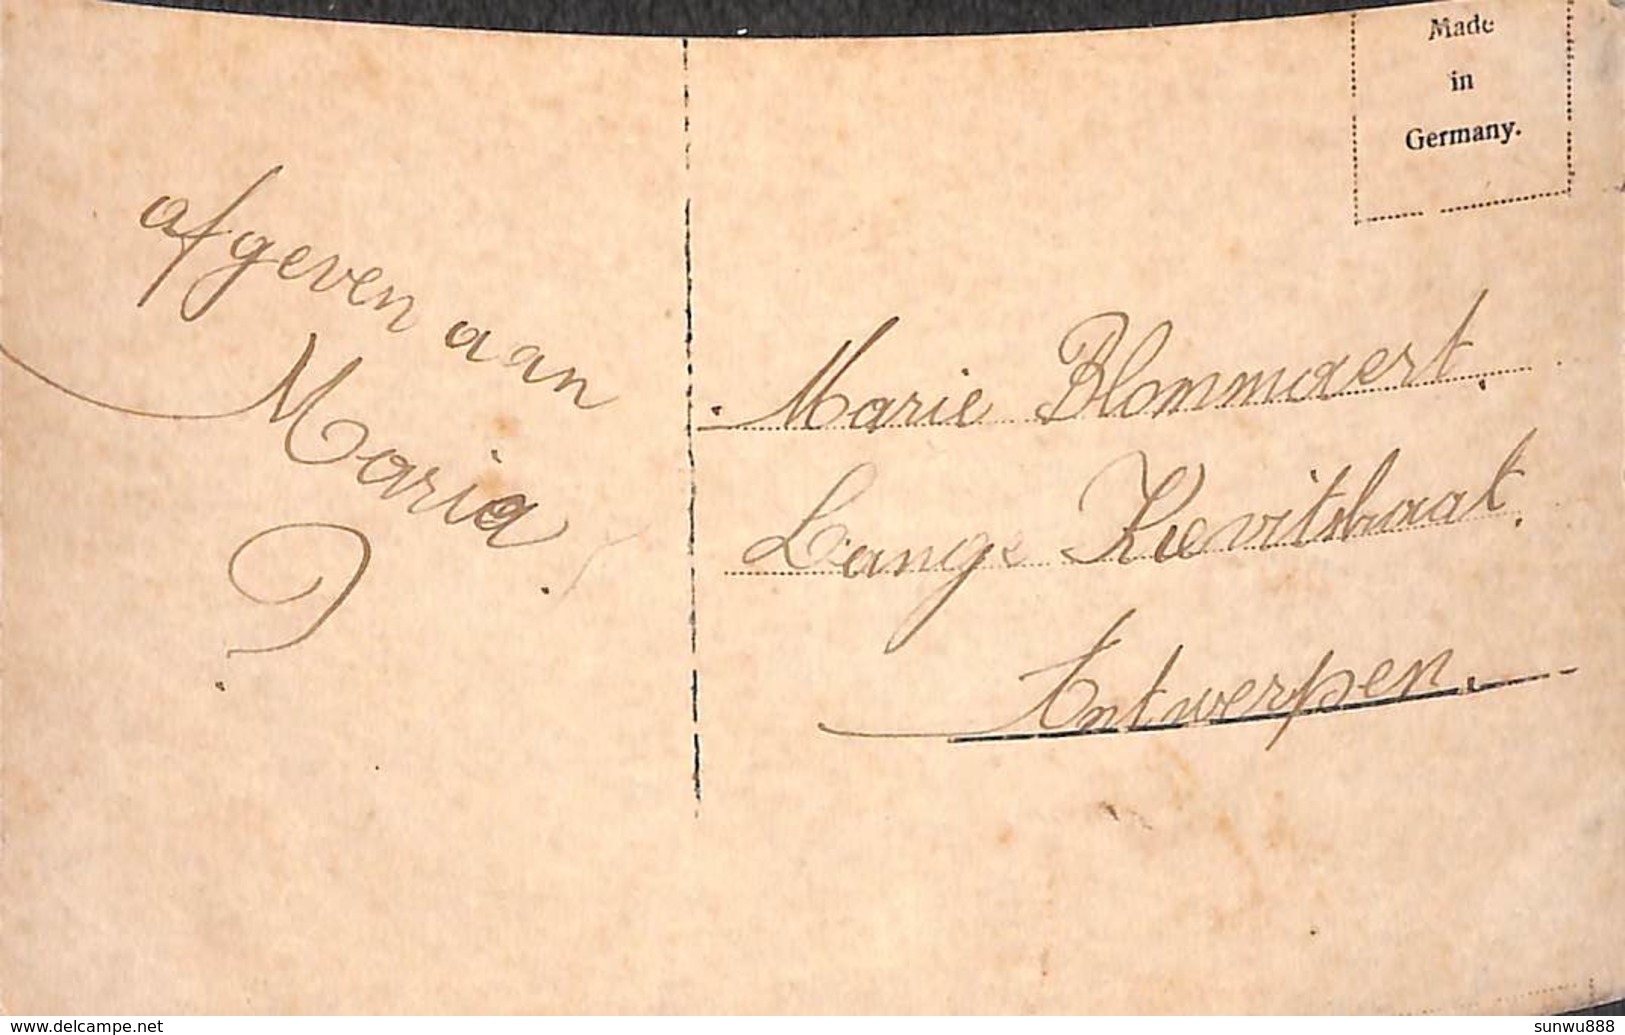 Made
in
Germany.
afgeven aan
Maria.
?
Marie Blommaert.
Lange Kievitstraat.
Antwerpen.
www.delcampe.net
sunwu888